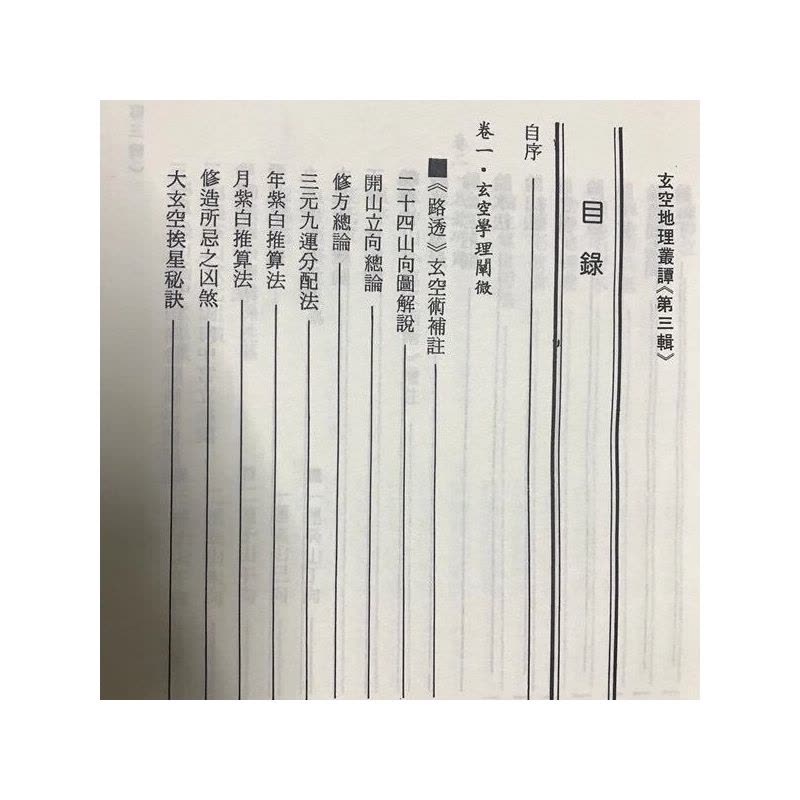 玄空地理叢譚《第三輯》
目錄
自序
卷一·玄空學理闡微
■《路透》玄空術補註
二十四山向圖解說
開山立向總論
修方總論
三元九運分配法
年紫白推算法
月紫白推算法
修造所忌之凶煞
大玄空挨星秘訣